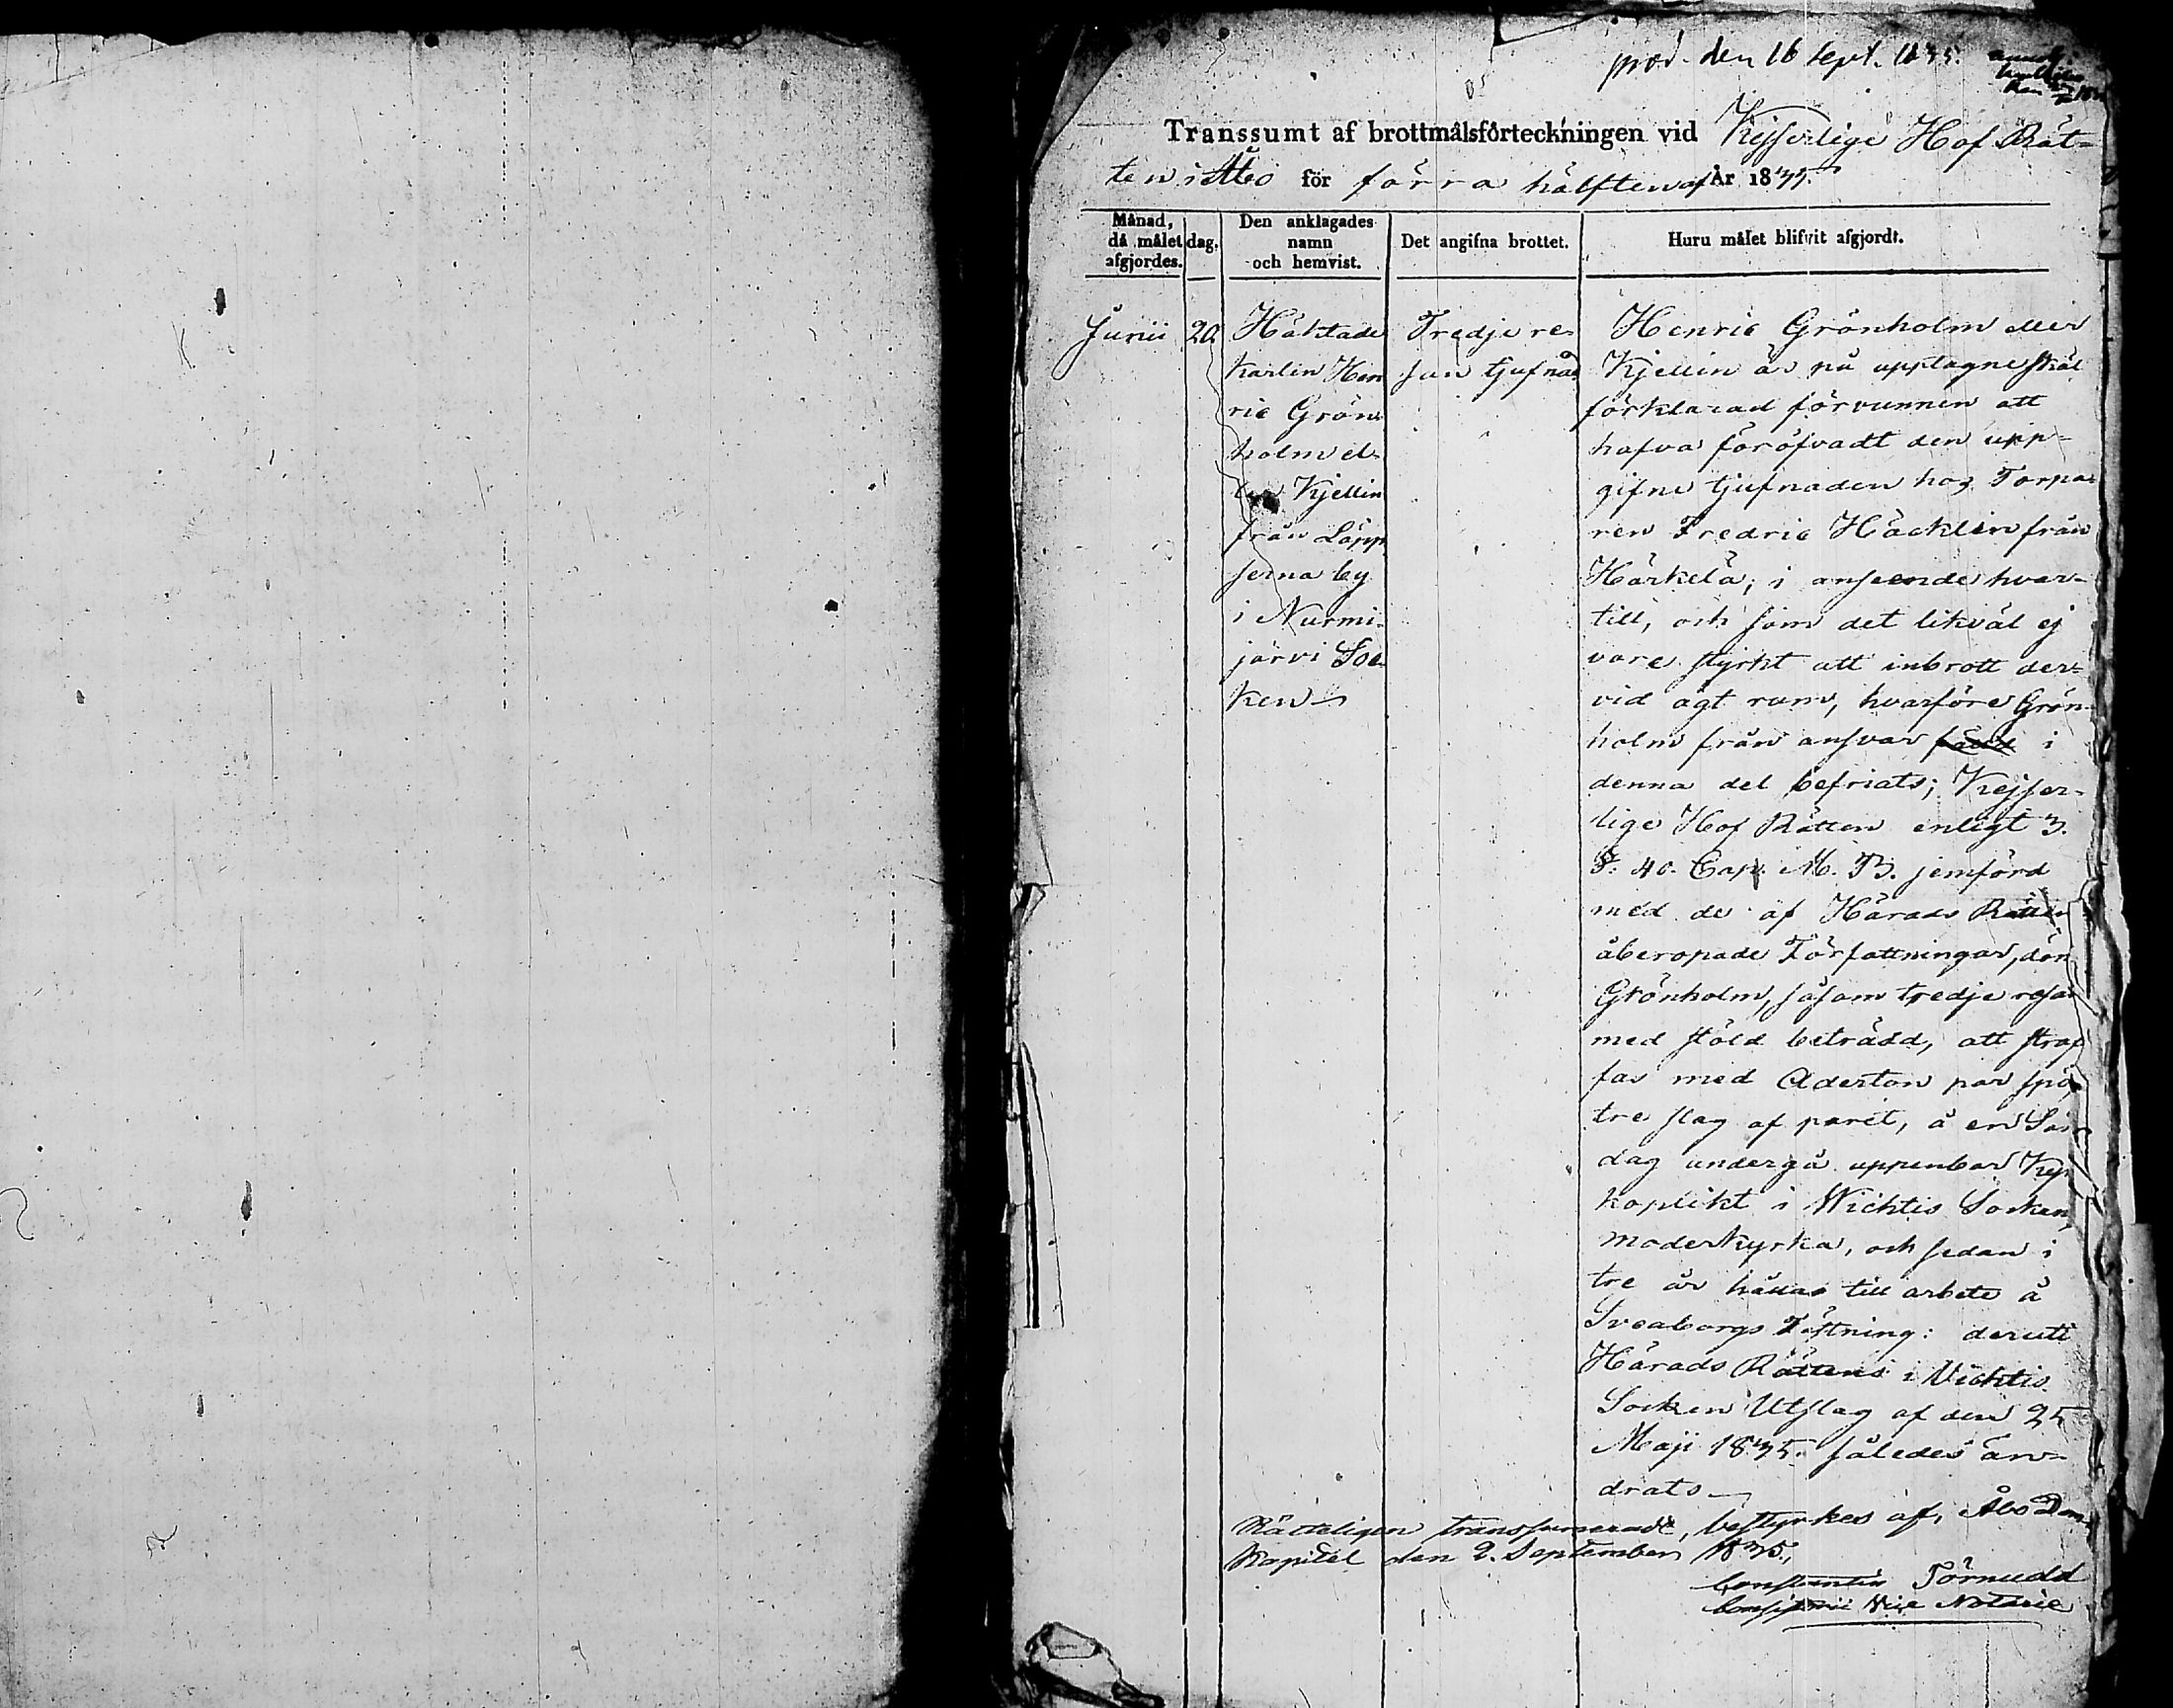 prod. den 16 Sept. 1835.
Transsumt af brottmålsförteckningen vid Kejserlige Hof Rät-
ten i Åbo för förra hälften af År 1835.
Månad, då målet afgjordes.
dag.
Den anklagades namn och hemvist.
Det angifna brottet.
Huru målet blifvit afgjordt.
Junii
20
Häktade
karlen Hen
ric Grön-
holm el-
ler Kjellin
från Läpp
serna by
i Nurmi-
järvi Soc-
ken
Tredje re-
san tjufnad
Henric Grönholm eller
Kjellin är på upptagne skäl
förklarad förvunnen att
hafva föröfvadt den upp-
gifne tjufnaden hos Torpa-
ren Fredric Häcklin från
Härkelä; i anseende hvar-
till, och som det likväl ej
vore styrkt att inbrott der-
vid ägt rum, hvarföre Grön-
holm från ansvar i
denna del befriats; Kejser-
lige Hof Rätten enligt 3.
§. 40. Cap. M. B. jemförd
med de af Härads Rätten
åberopade Författningar, döm
Grönholm, såsom tredje resan
med stöld beträdd, att straf
fas med Aderton par spö,
tre slag af paret, å en Sön
dag undergå uppenbar Kyr
koplikt i Wichtis Socken
moderkyrka, och sedan i
tre år hållas till arbete å
Sveaborgs Fästning: derutі
Härads Rättens i Vichtis
Socken Utslag af den 25
Maji 1835. således än-
drats
Rätteligen transsumeradt, bestyrkes af, Åbo Dom
Kapitel den 2. September 1835,
Constantin Törnudd
Consistorii Vice Notarie